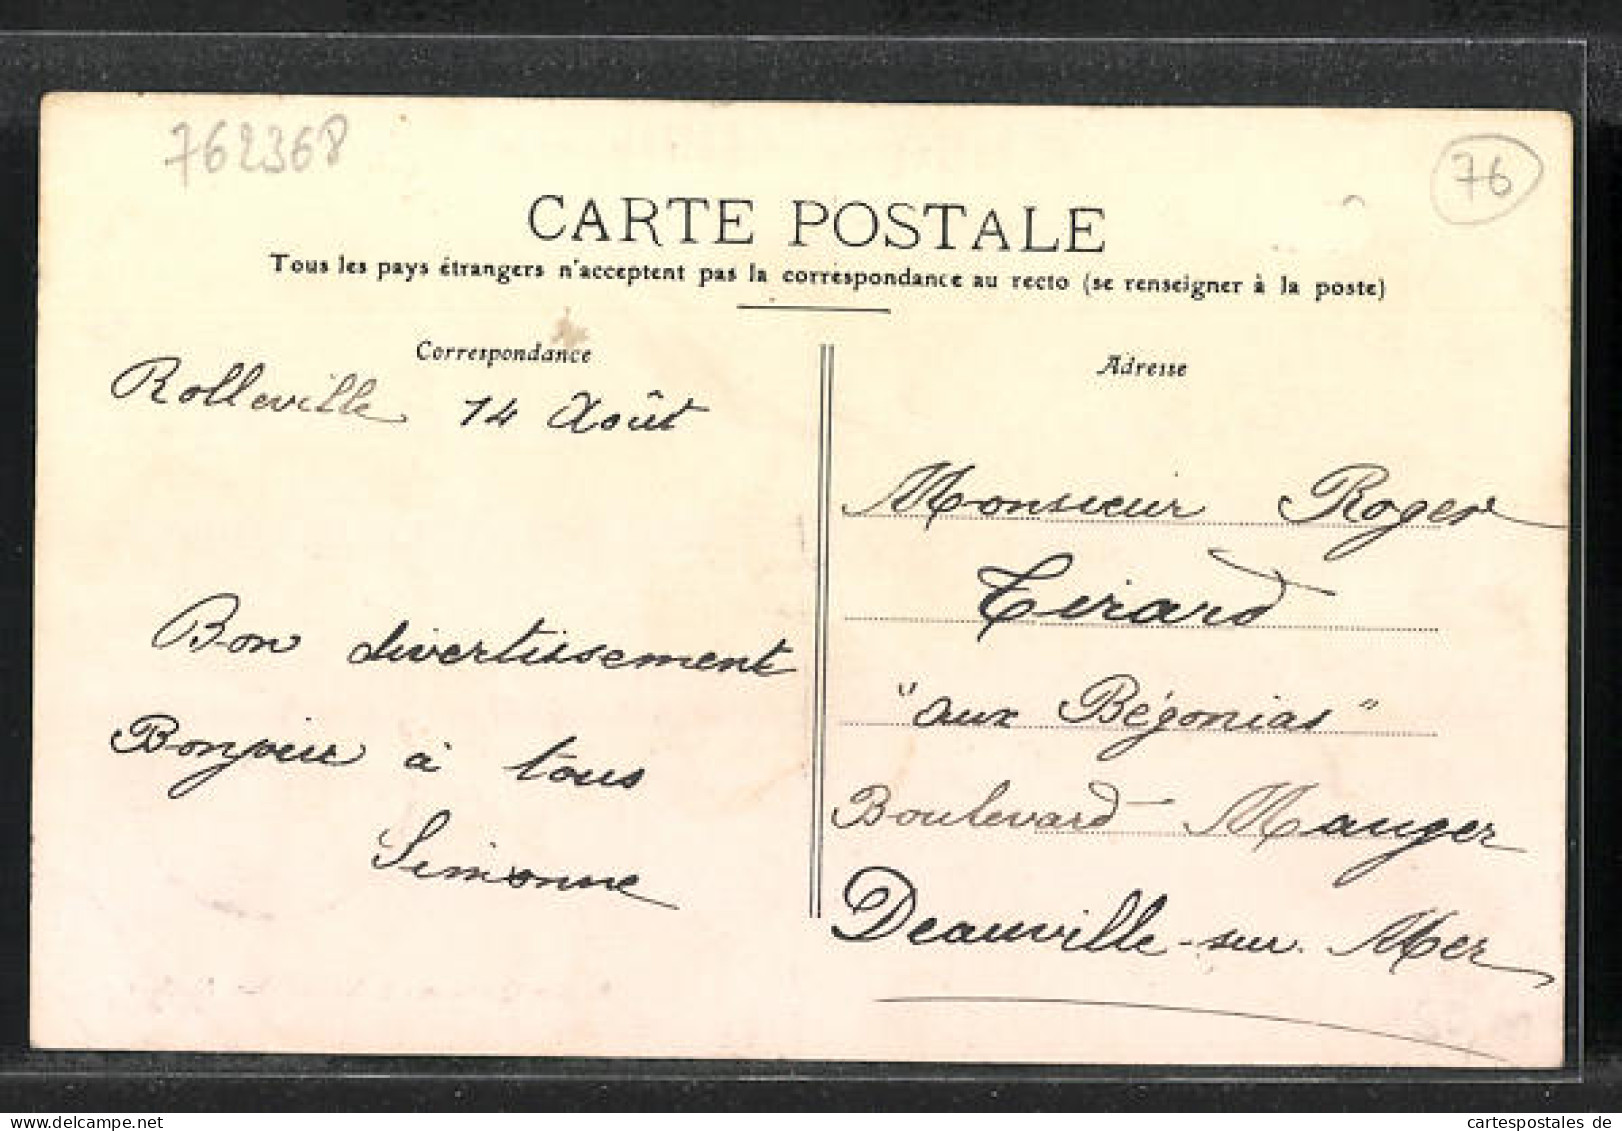 762368
76
CARTE POSTALE
Tous les pays étrangers n'acceptent pas la correspondance au recto (se renseigner à la poste)
Correspondance
Rolleville 14 Août
Bon divertissement
Bonjour à tous
Simonne
Adresse
Monsieur Roger
Tirard
"aux Bégonias"
Boulevard Mauger
Deauville-sur-Mer
cartespostales de